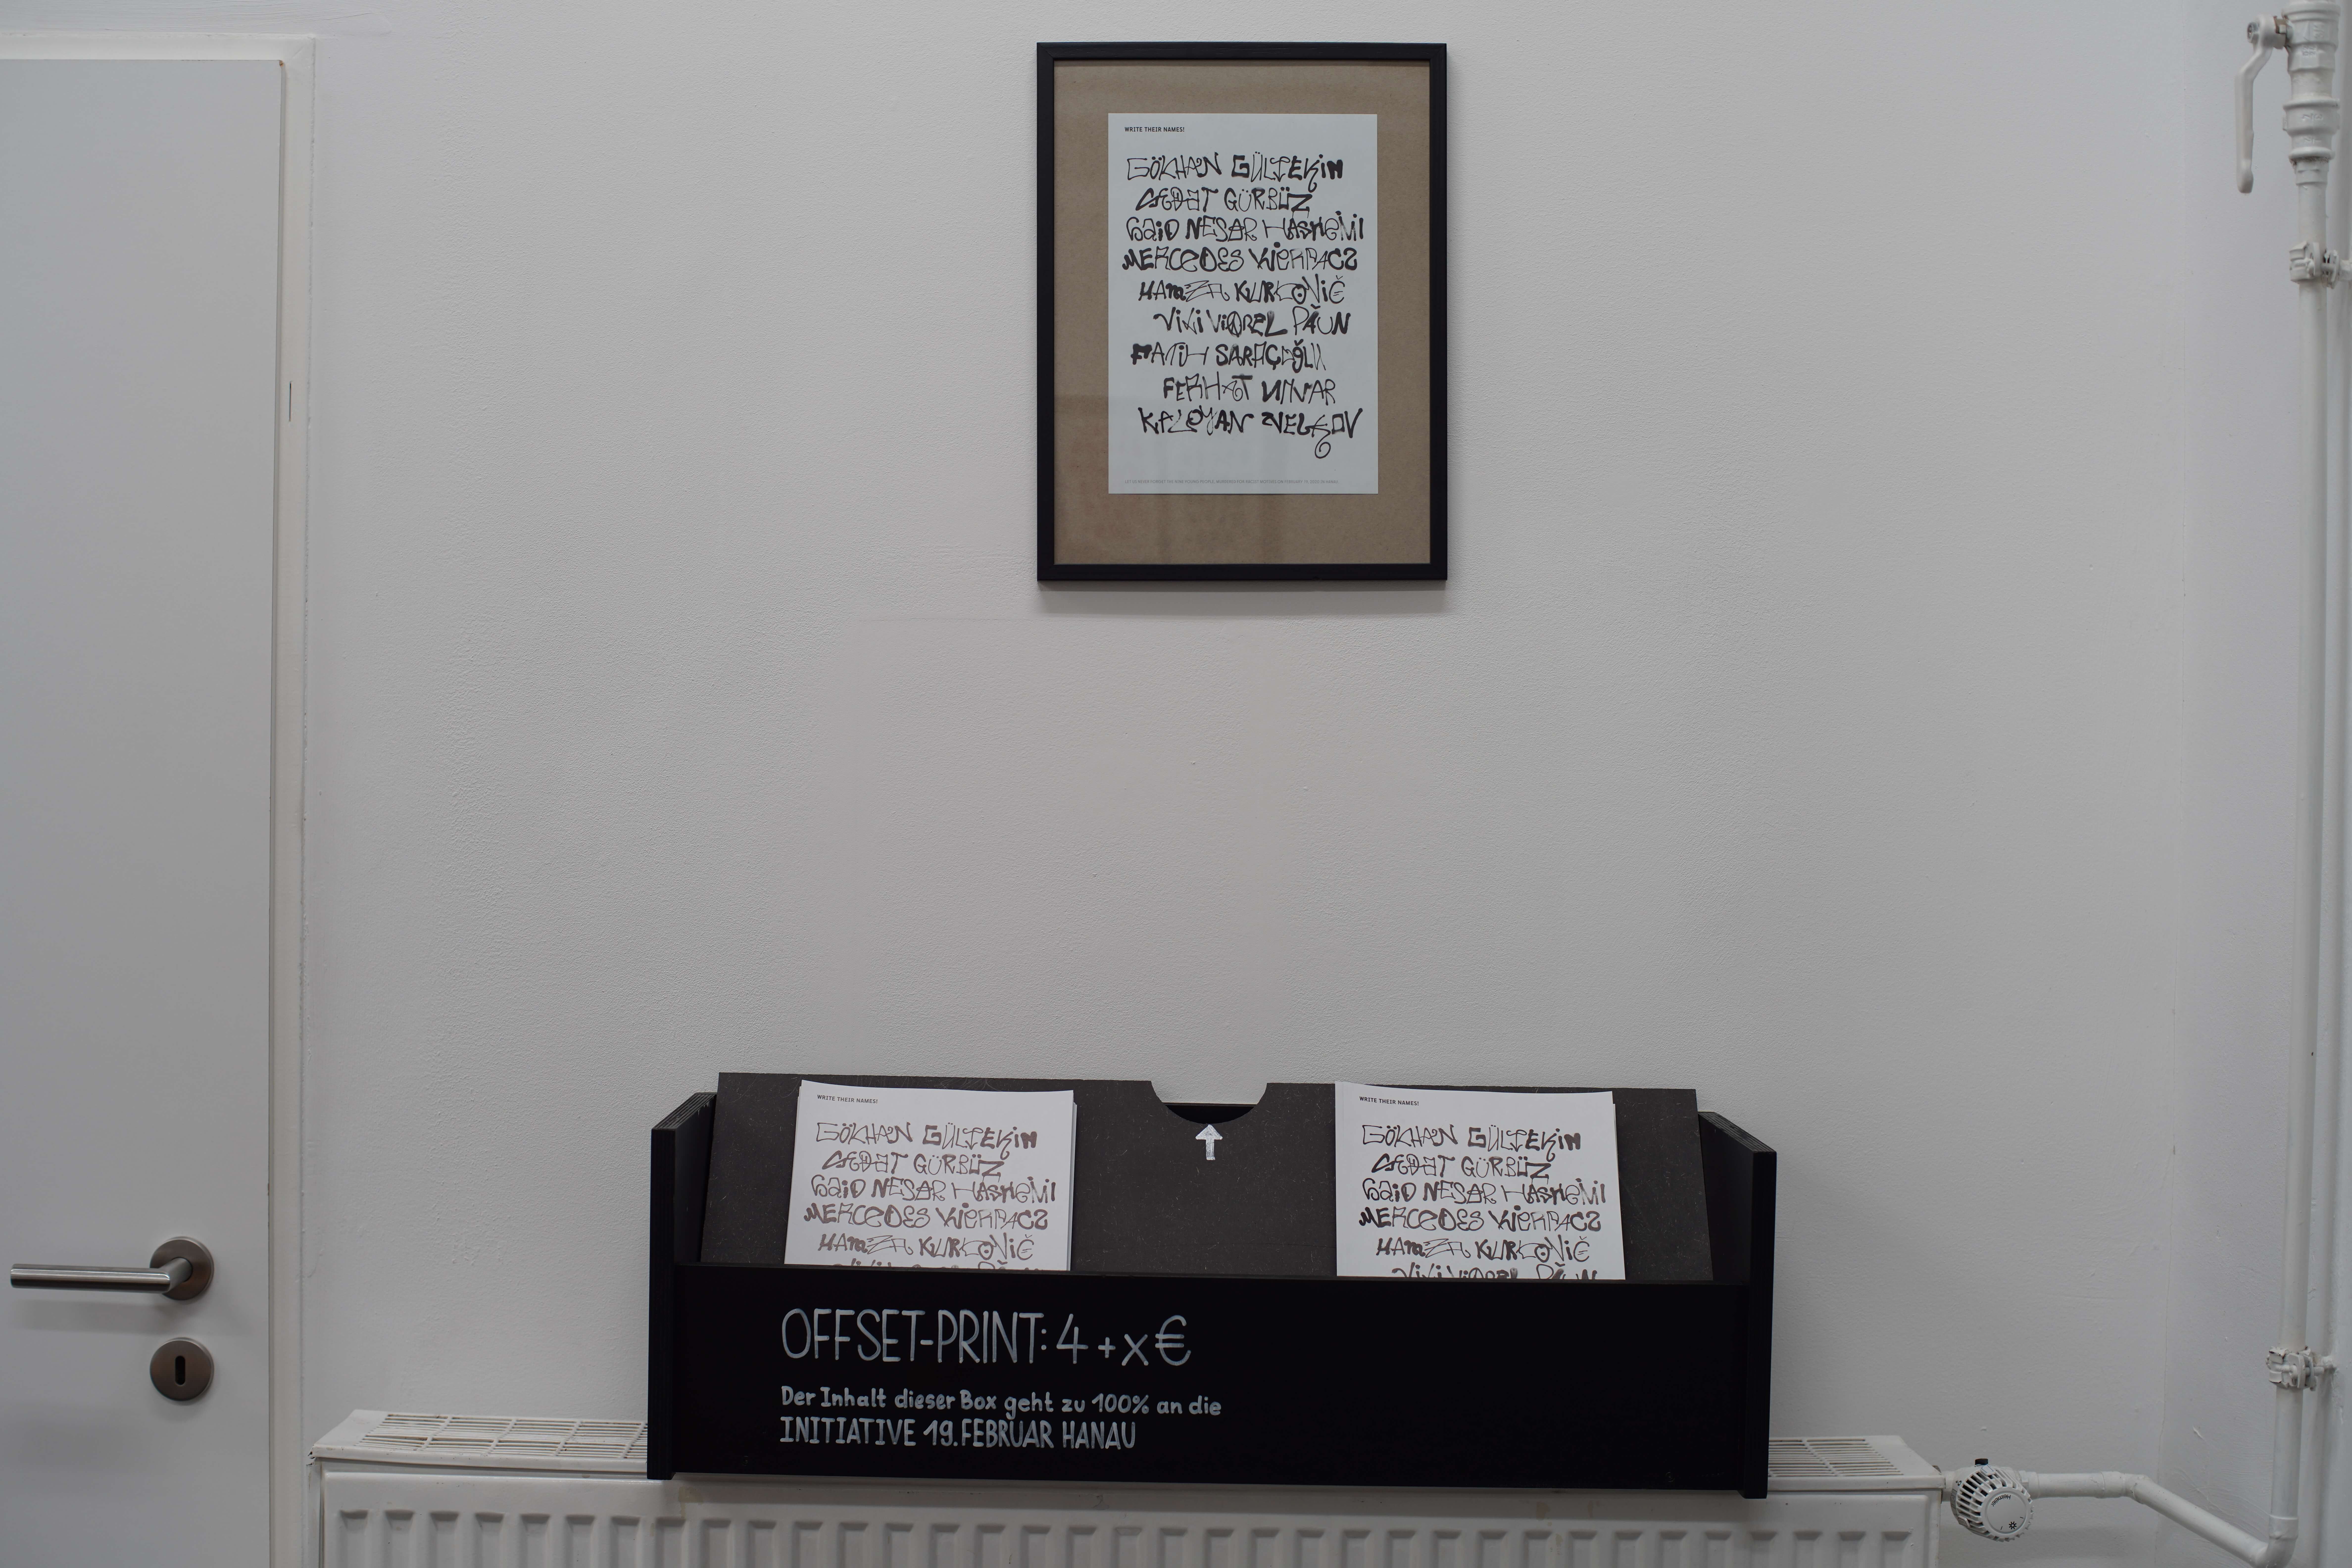 WRITE THEIR NAMES!
GÖKHAN GÜLTEKIN
SEDAT GÜRBÜZ
SAID NESAR HASHEMI
MERCEDES KIERPACZ
HAMZA KURTOVIĆ
VILI VIOREL PĂUN
FATIH SARAÇOĞLU
FERHAT UNVAR
KALOYAN VELKOV
WRITE THEIR NAMES!
GÖKHAN GÜLTEKIN
SEDAT GÜRBÜZ
SAID NESAR HASHEMI
MERCEDES KIERPACZ
HAMZA KURTOVIĆ
VILI VIOREL PĂUN
WRITE THEIR NAMES!
GÖKHAN GÜLTEKIN
SEDAT GÜRBÜZ
SAID NESAR HASHEMI
MERCEDES KIERPACZ
HAMZA KURTOVIĆ
VILI VIOREL PĂUN
OFFSET-PRINT: 4 + x €
Der Inhalt dieser Box geht zu 100% an die
INITIATIVE 19. FEBRUAR HANAU